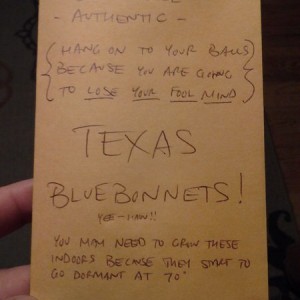 - AUTHENTIC -
{HANG ON TO YOUR BALLS
BECAUSE YOU ARE GOING
TO LOSE YOUR FOOL MIND}
TEXAS
BLUEBONNETS!
YEE-HAW!!
YOU MAY NEED TO GROW THESE
INDOORS BECAUSE THEY START TO
GO DORMANT AT 70°